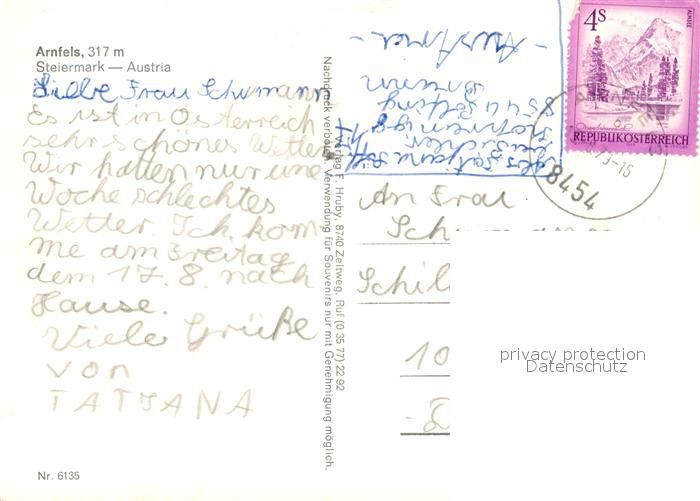 Arnfels, 317 m
Steiermark — Austria
Liebe Frau Schumann
Es ist in Österreich
sehr schönes Wetter
Wir hatten nur eine
Woche schlechtes
Wetter. Ich kom-
me am Freitag
dem 17. 8. nach
Hause.
Viele Grüße
von
TATJANA
Nr. 6135
Nachdruck verboten. Verwendung für Souvenirs nur mit Genehmigung möglich.
Verlag F. Hruby, 8740 Zeltweg, Ruf (0 35 77) 22 92
- Austria -
4S
ALMSEE
REPUBLIK ÖSTERREICH
8454
An Frau
Sch
Schil
10
privacy protection
Datenschutz